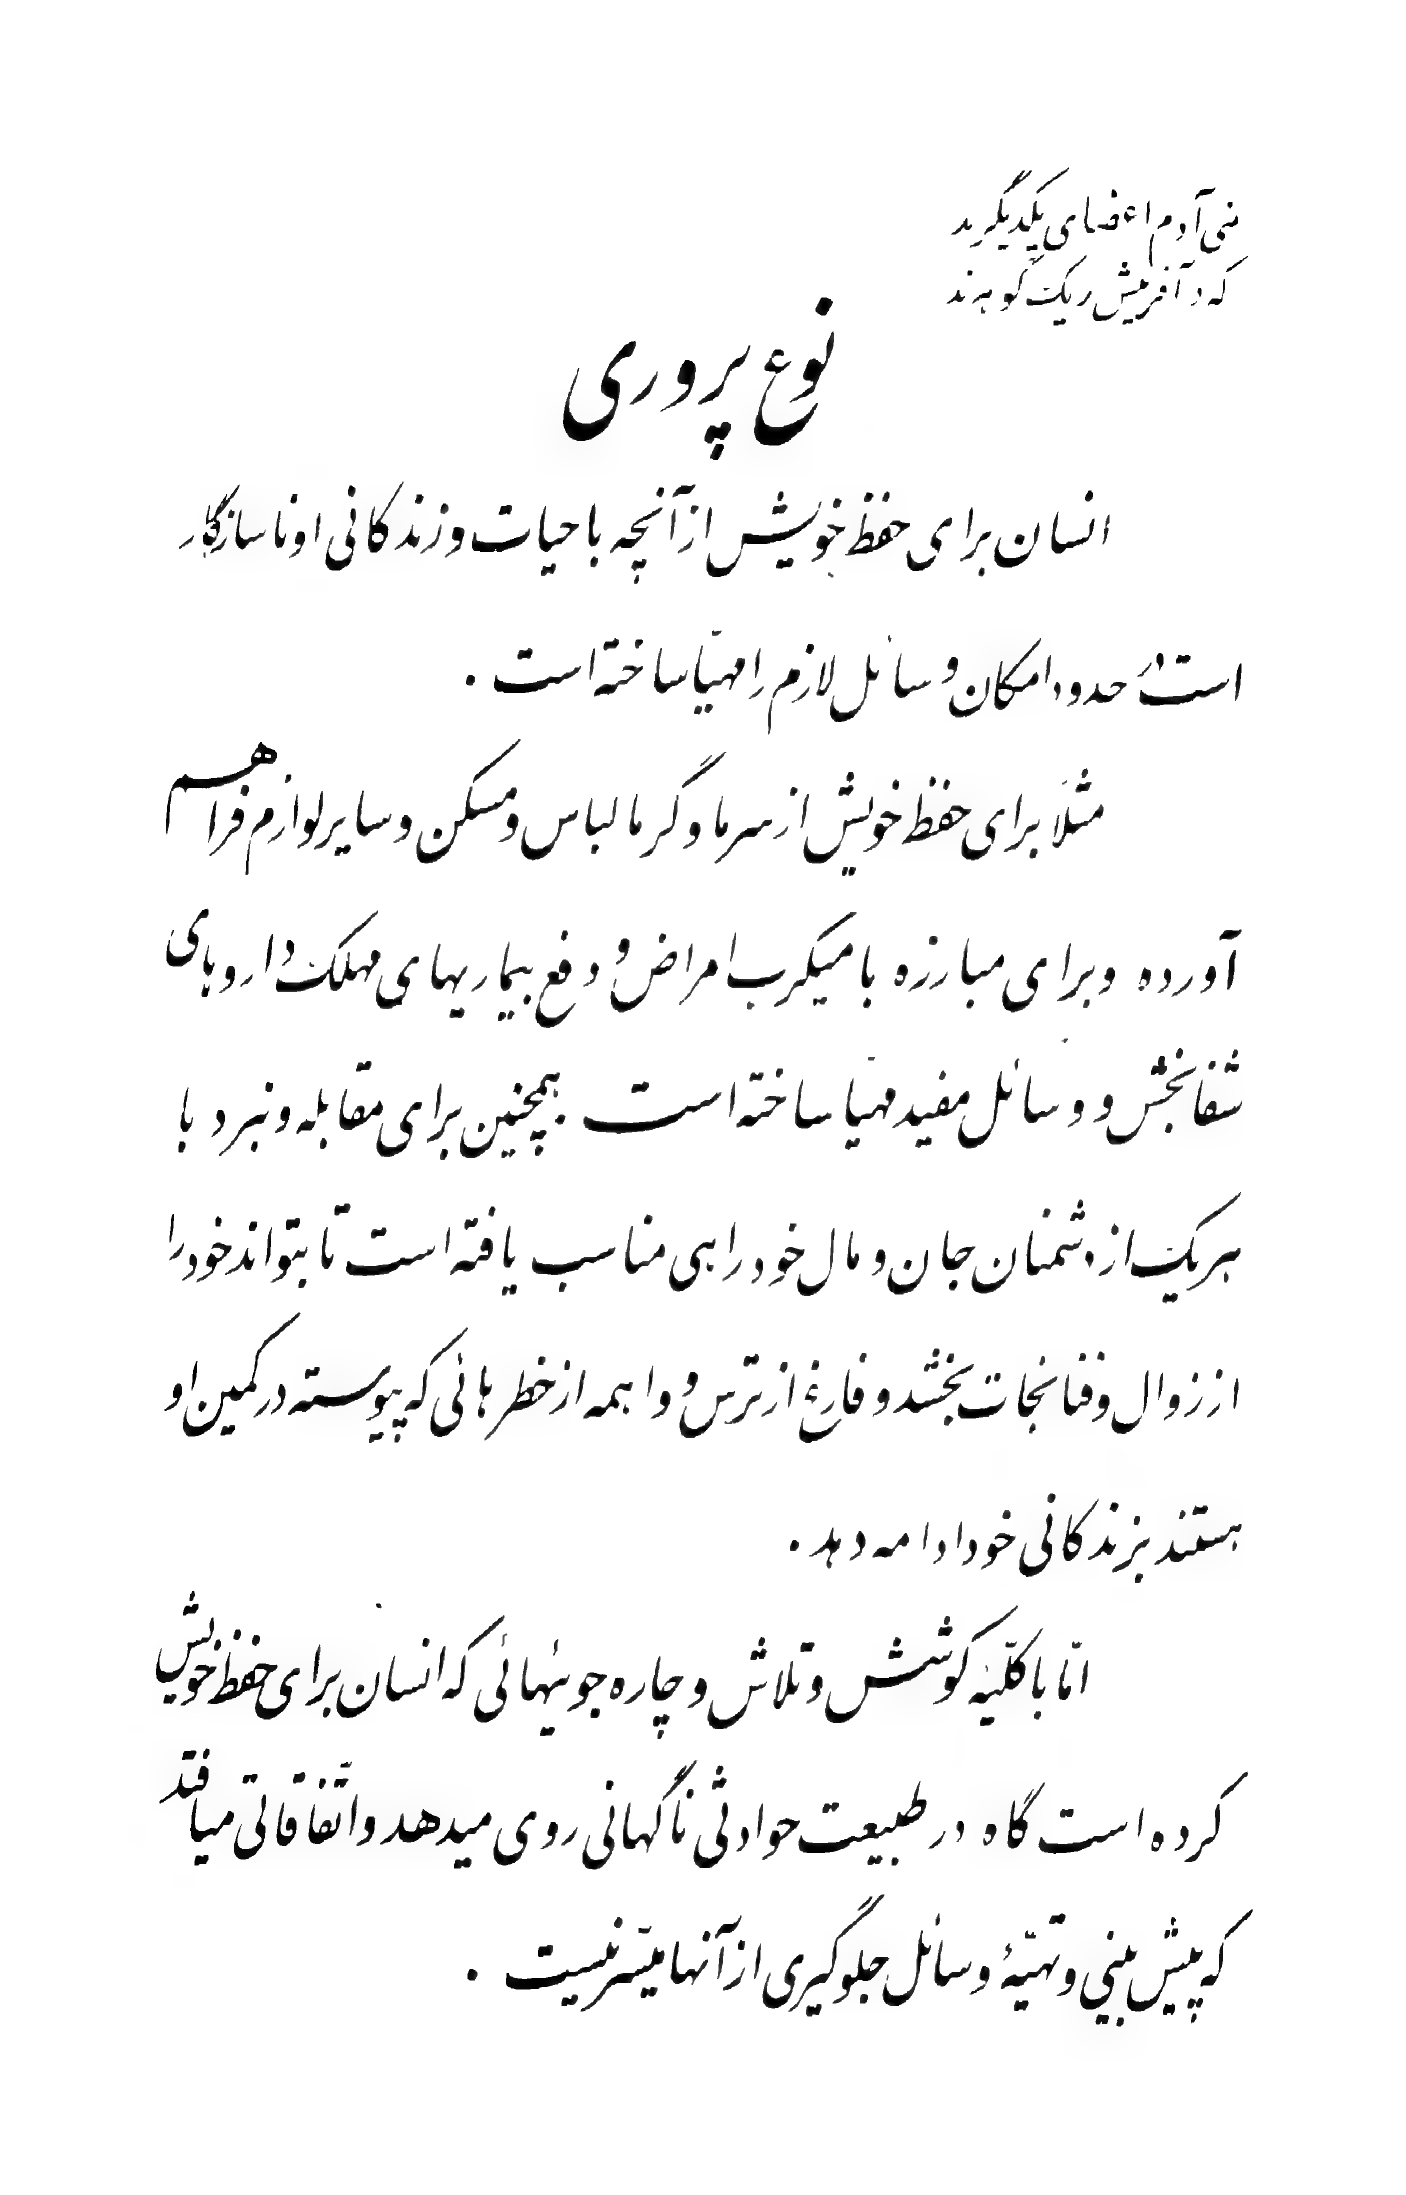 بنی آدم اعضای یکدیگرند
که در آفرینش ز یک گوهرند
نوع پروری
انسان برای حفظ خویش از آنچه با حیات و زندگانی او ناسازگار
است در حدود امکان وسائل لازم را مهیّا ساخته است .
مثلاً برای حفظ خویش از سرما و گرما لباس و مسکن و سایر لوازم فراهم
آورده و برای مبارزه با میکرب امراض و دفع بیماریهای مهلک داروهای
شفابخش و وسائل مفید مهیّا ساخته است . همچنین برای مقابله و نبرد با
هر یک از دشمنان جان و مال خود راهی مناسب یافته است تا بتواند خود را
از زوال و فنا نجات بخشد و فارغ از ترس و واهمه از خطرهائی که پیوسته در کمین او
هستند بزندگانی خود ادامه دهد .
امّا با کلّیّه کوشش و تلاش و چاره جوئیهائی که انسان برای حفظ خویش
کرده است گاه در طبیعت حوادثی ناگهانی روی میدهد و اتّفاقاتی میافتد
که پیش بینی و تهیّهٔ وسائل جلوگیری از آنها میسّر نیست .